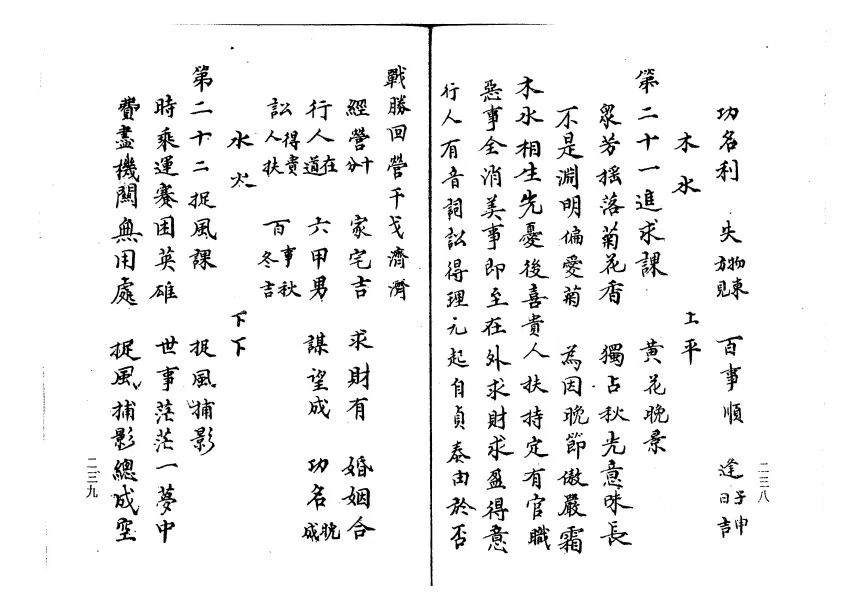 功名利　失物東方見　百事順　逢子申日吉
木水　上平
第二十一進求課　黃花晚景
眾芳搖落菊花香　獨占秋光意味長
不是淵明偏愛菊　為因晚節傲嚴霜
木水相生先憂後喜貴人扶持定有官職
惡事全消美事即至在外求財求盈得意
行人有音詞訟得理元起自貞泰由於否
二三八
戰勝回營干戈濟濟
經營十分　家宅吉　求財有　婚姻合
行人在道　六甲男　謀望成　功名晚成
訟得貴人扶　百事秋冬吉
水火　下下
第二十二捉風課　捉風捕影
時乘運蹇困英雄　世事茫茫一夢中
費盡機關無用處　捉風捕影總成空
二三九